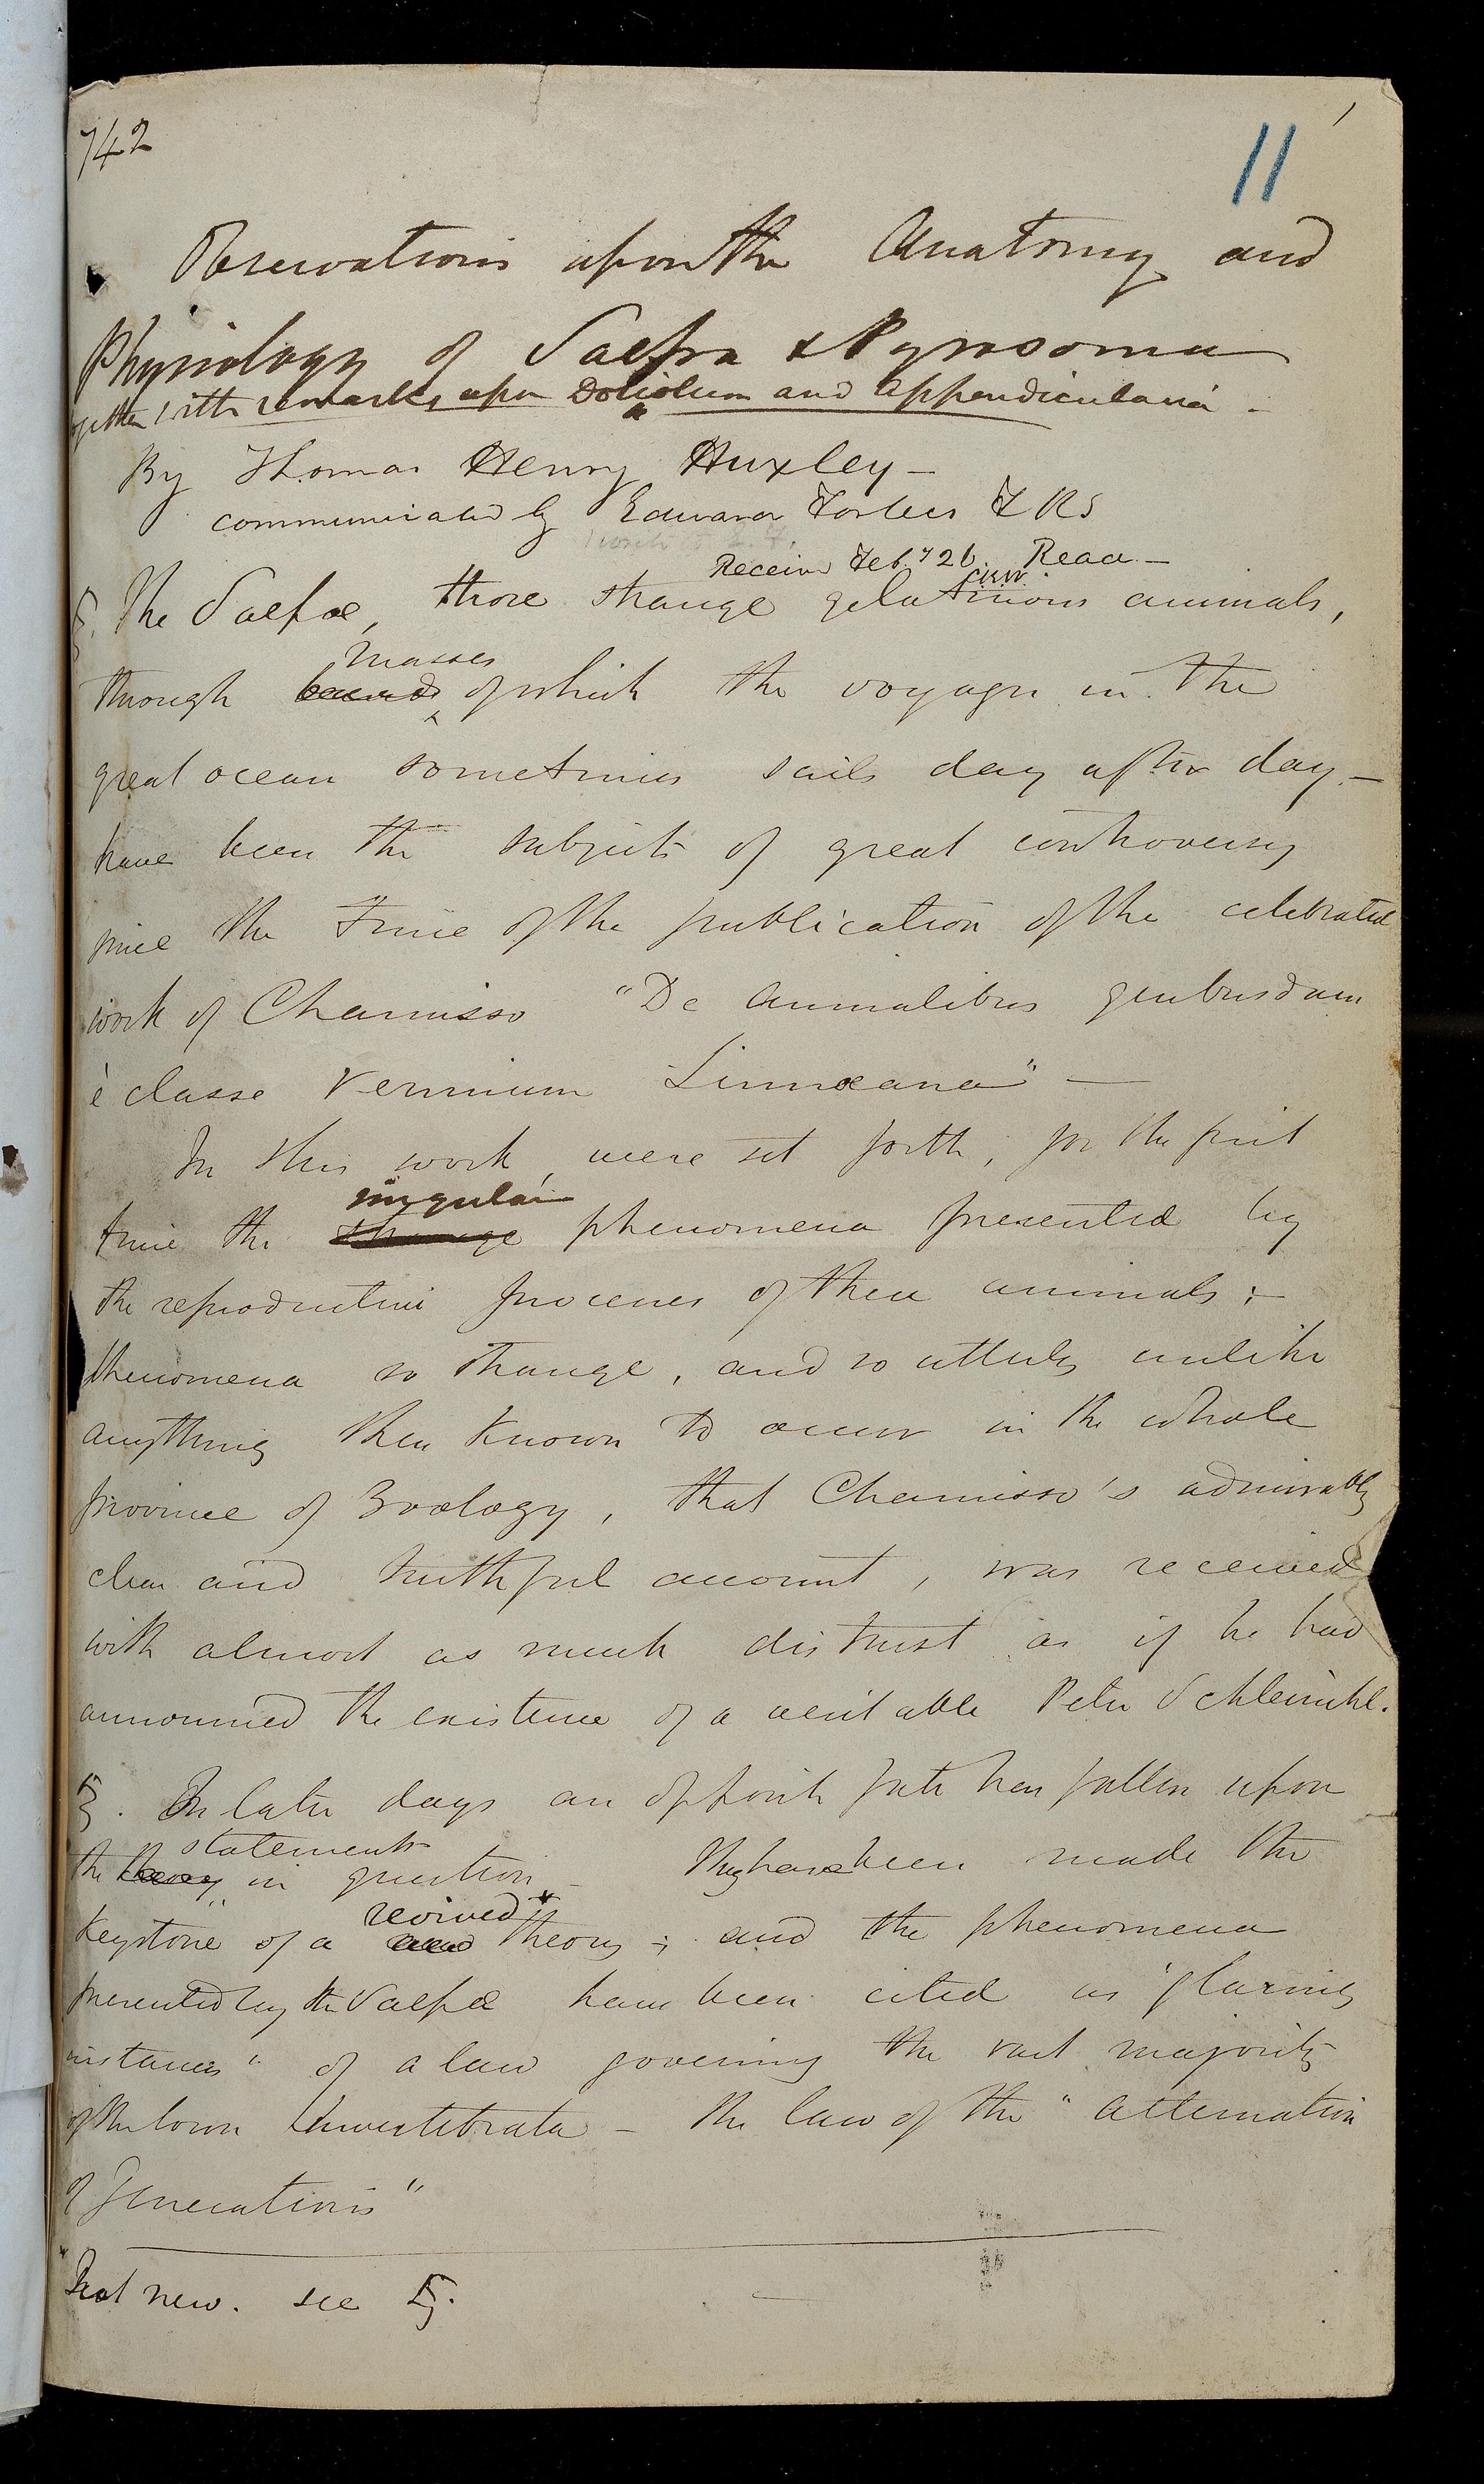 742
11
Observations upon the Anatomy and
Physiology of Salpa & Pyrosoma
together with remarks upon Doliolum and Appendicularia -
By Thomas Henry Huxley -
communicated by Edward Forbes F R S
Received Feb.y 26. Read -
§. The Salpæ, those strange gelatinous animals,
masses
through of which the voyager in the
great ocean sometimes sails day after day -
have been the subjects of great controversy
since the time of the publication of the celebrated
work of Chamisso "De Animalibus quibusdam
è classe Vermium Linnæana" -
In this work were set forth, for the first
singular
time the strange phenomena presented by
the reproductive processes of these animals; -
phenomena so strange, and so utterly unlike
anything then known to occur in the whole
province of Zoology, that Chamisso's admirably
clear and truthful account, was received
with almost as much distrust as if he had
announced the existence of a veritable Peter Schlemihl.
§. In later days an opposite fate has fallen upon
statements
the theory in question - They have been made the
revived*
keystone of a new theory; and the phenomena
presented by the Salpæ have been cited as "glaring
instances" of a law governing the vast majority
of the lower Invertebrata - the law of the "Alternation
of Generations"
* Not new. see §.